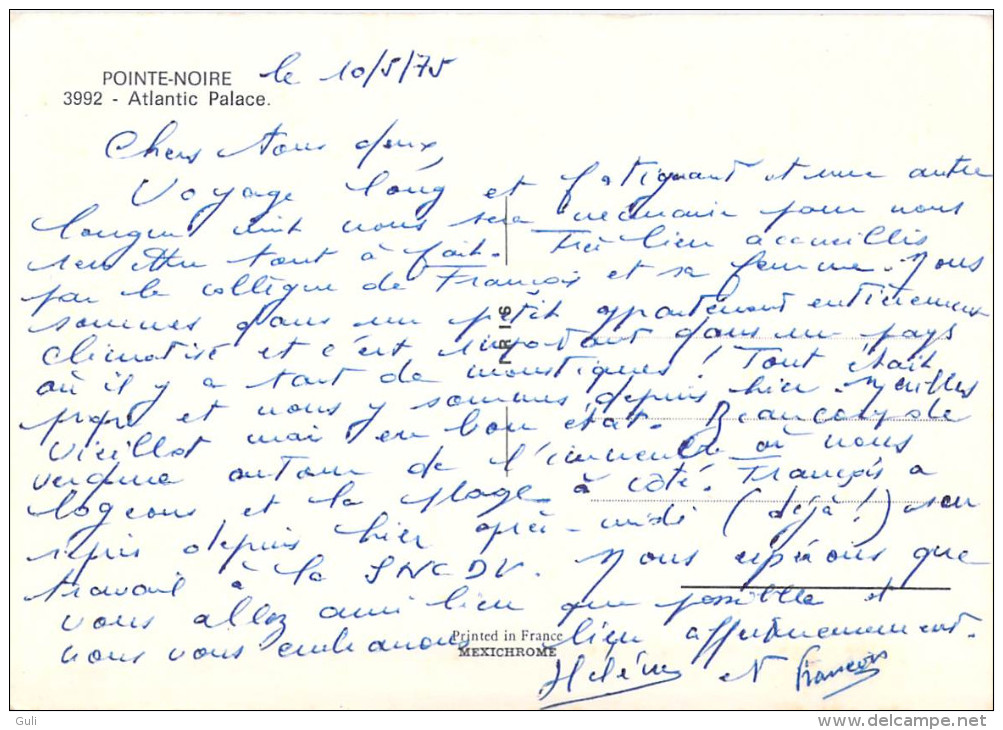 POINTE-NOIRE le 10/5/75
3992 - Atlantic Palace.
Chers tous deux,
Voyage long et fatiguant et une autre
longue nuit nous sera nécessaire pour nous
remettre tout à fait. Très bien accueillis
par le collègue de François et sa femme. Nous
sommes dans un petit appartement entièrement
climatisé et c'est important dans un pays
où il y a tant de moustiques ! Tout était
prêt et nous y sommes depuis hier. Meubles
vieillot mais en bon état. Beaucoup de
verdure autour de l'immeuble où nous
logeons et la plage à côté. François a
repris depuis hier après-midi (déjà !) son
travail à la SNCDV. Nous espérons que
vous allez aussi bien que possible et
nous vous embrassons bien affectueusement.
Hélène et François
NR 16
Printed in France
MEXICHROME
Guli
delcampe.net